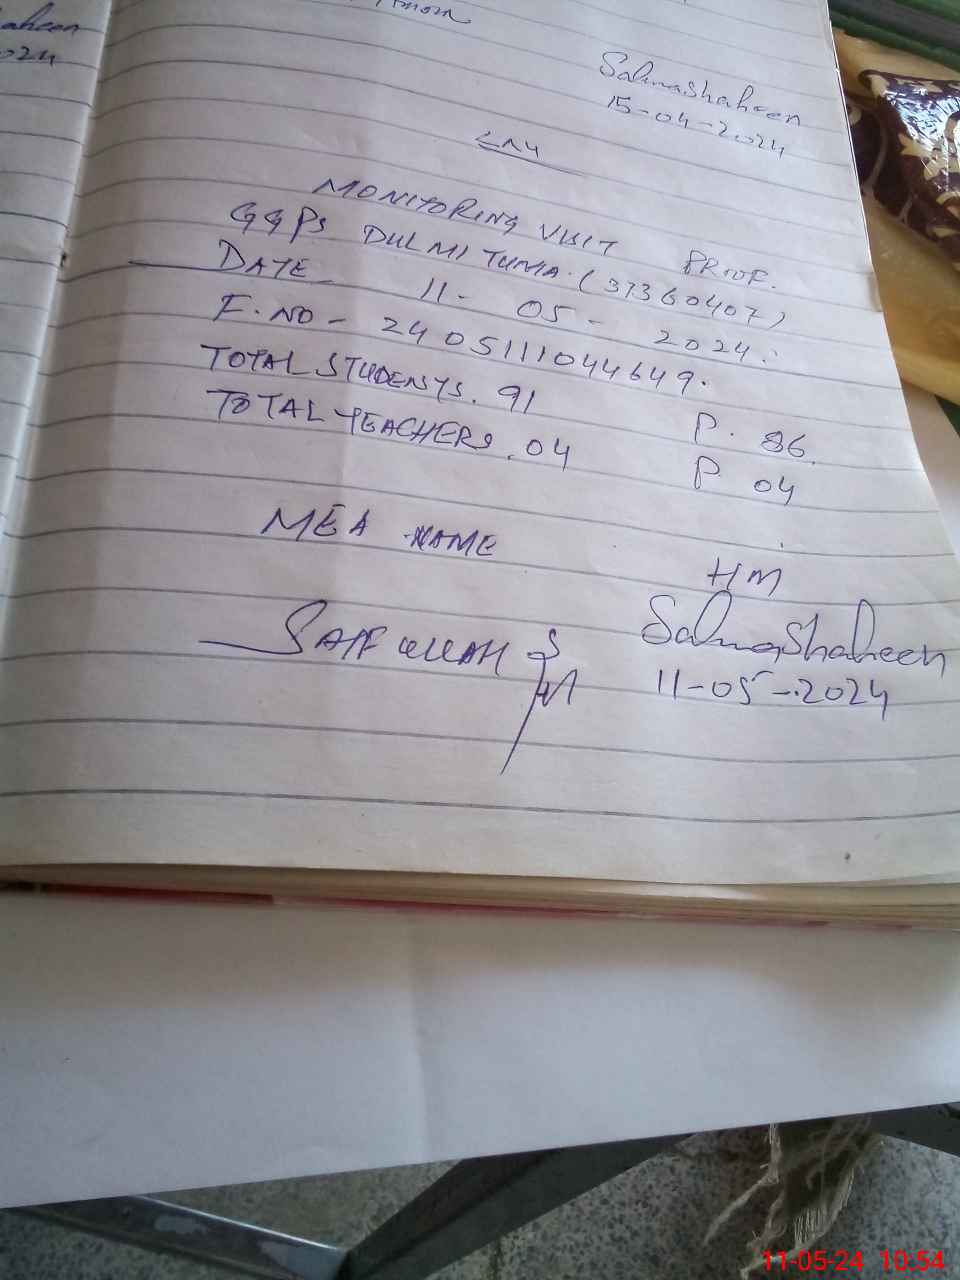 aheen
2024
Salma Shaheen
15-04-2024
MONITORING VISIT PROOF.
GGPS DULMI TUMA. (37360407)
DATE 11-05-2024.
F.NO-2405111044649.
TOTAL STUDENTS. 91 P. 86.
TOTAL TEACHERS. 04 P. 04
MEA NAME
HM
SAIF ULLAH
Salma Shaheen
11-05-2024
11-05-24 10:54